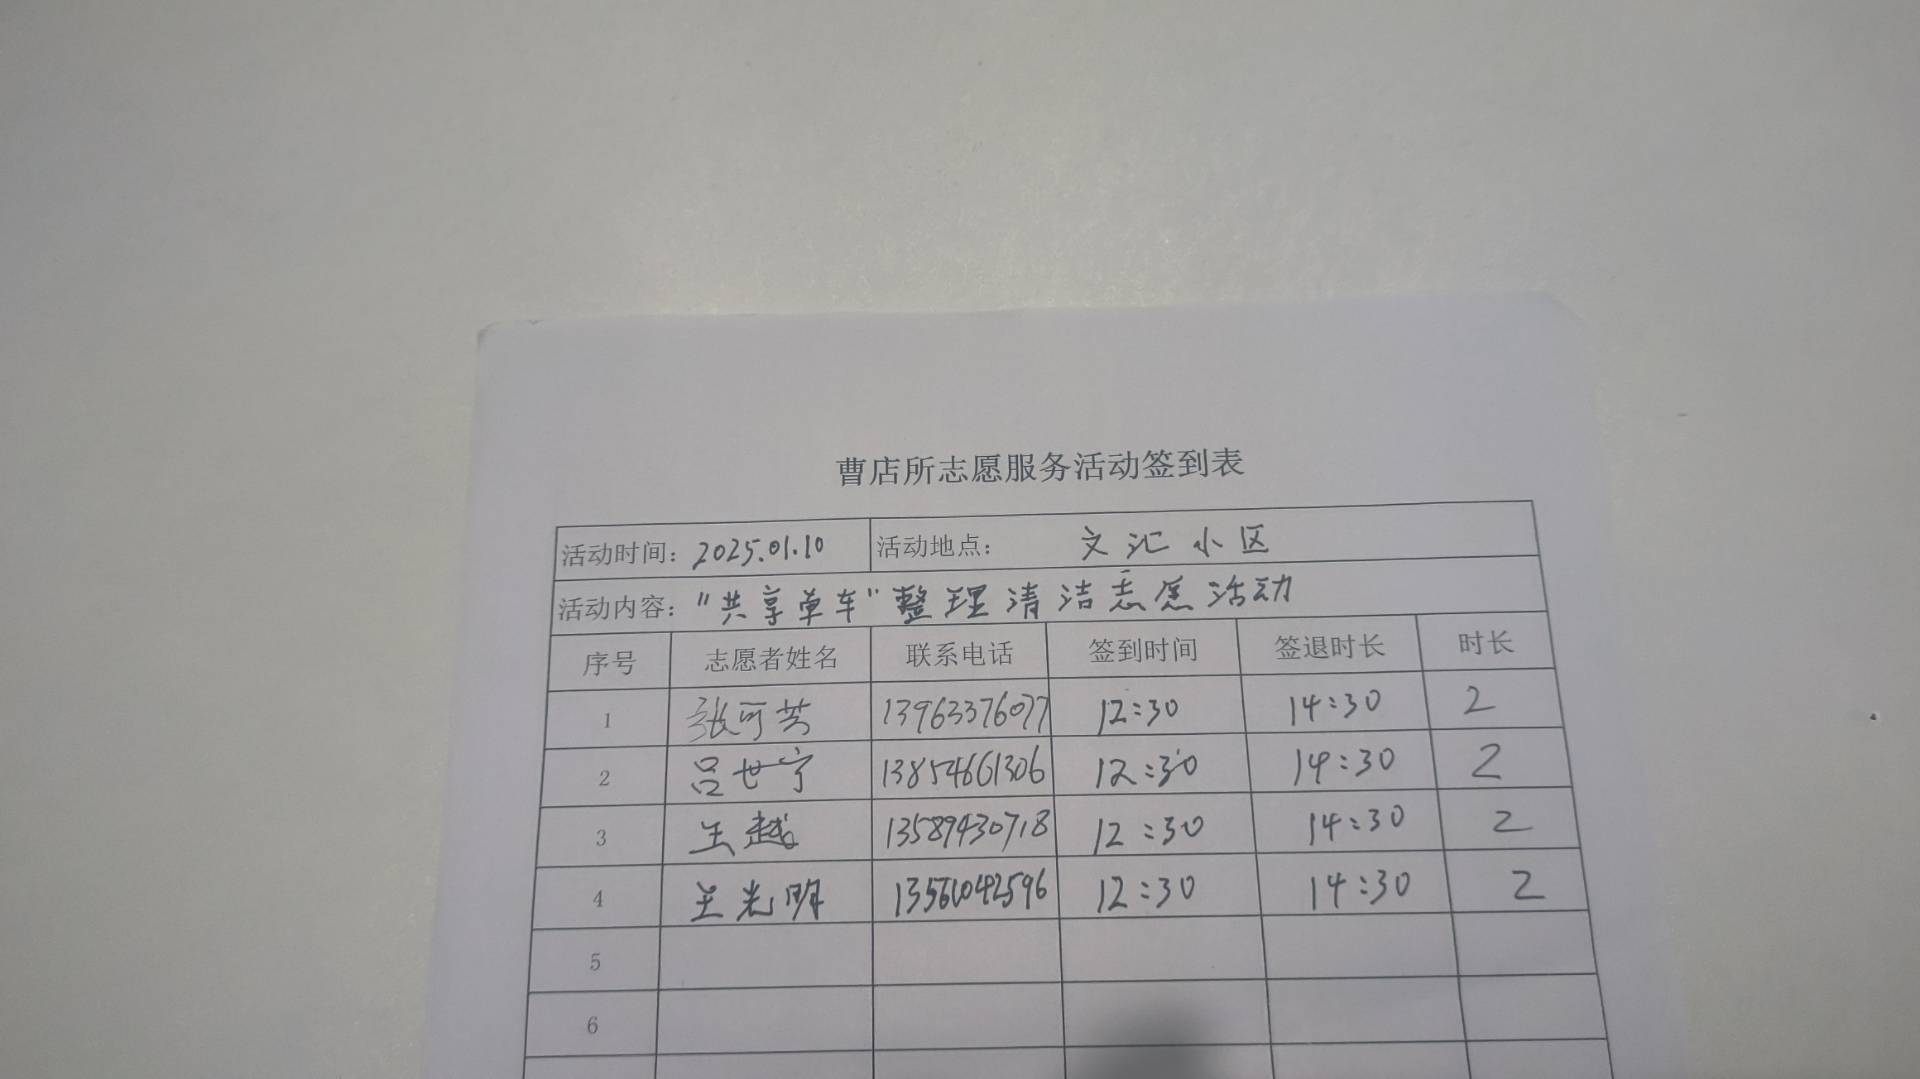 曹店所志愿服务活动签到表
活动时间：2025.01.10 活动地点： 文汇小区
活动内容："共享单车"整理清洁志愿活动
序号 志愿者姓名 联系电话 签到时间 签退时长 时长
1 张可芸 13963376077 12:30 14:30 2
2 吕世宁 13854661306 12:30 14:30 2
3 王越 13589430718 12:30 14:30 2
4 王光明 13561042596 12:30 14:30 2
5
6